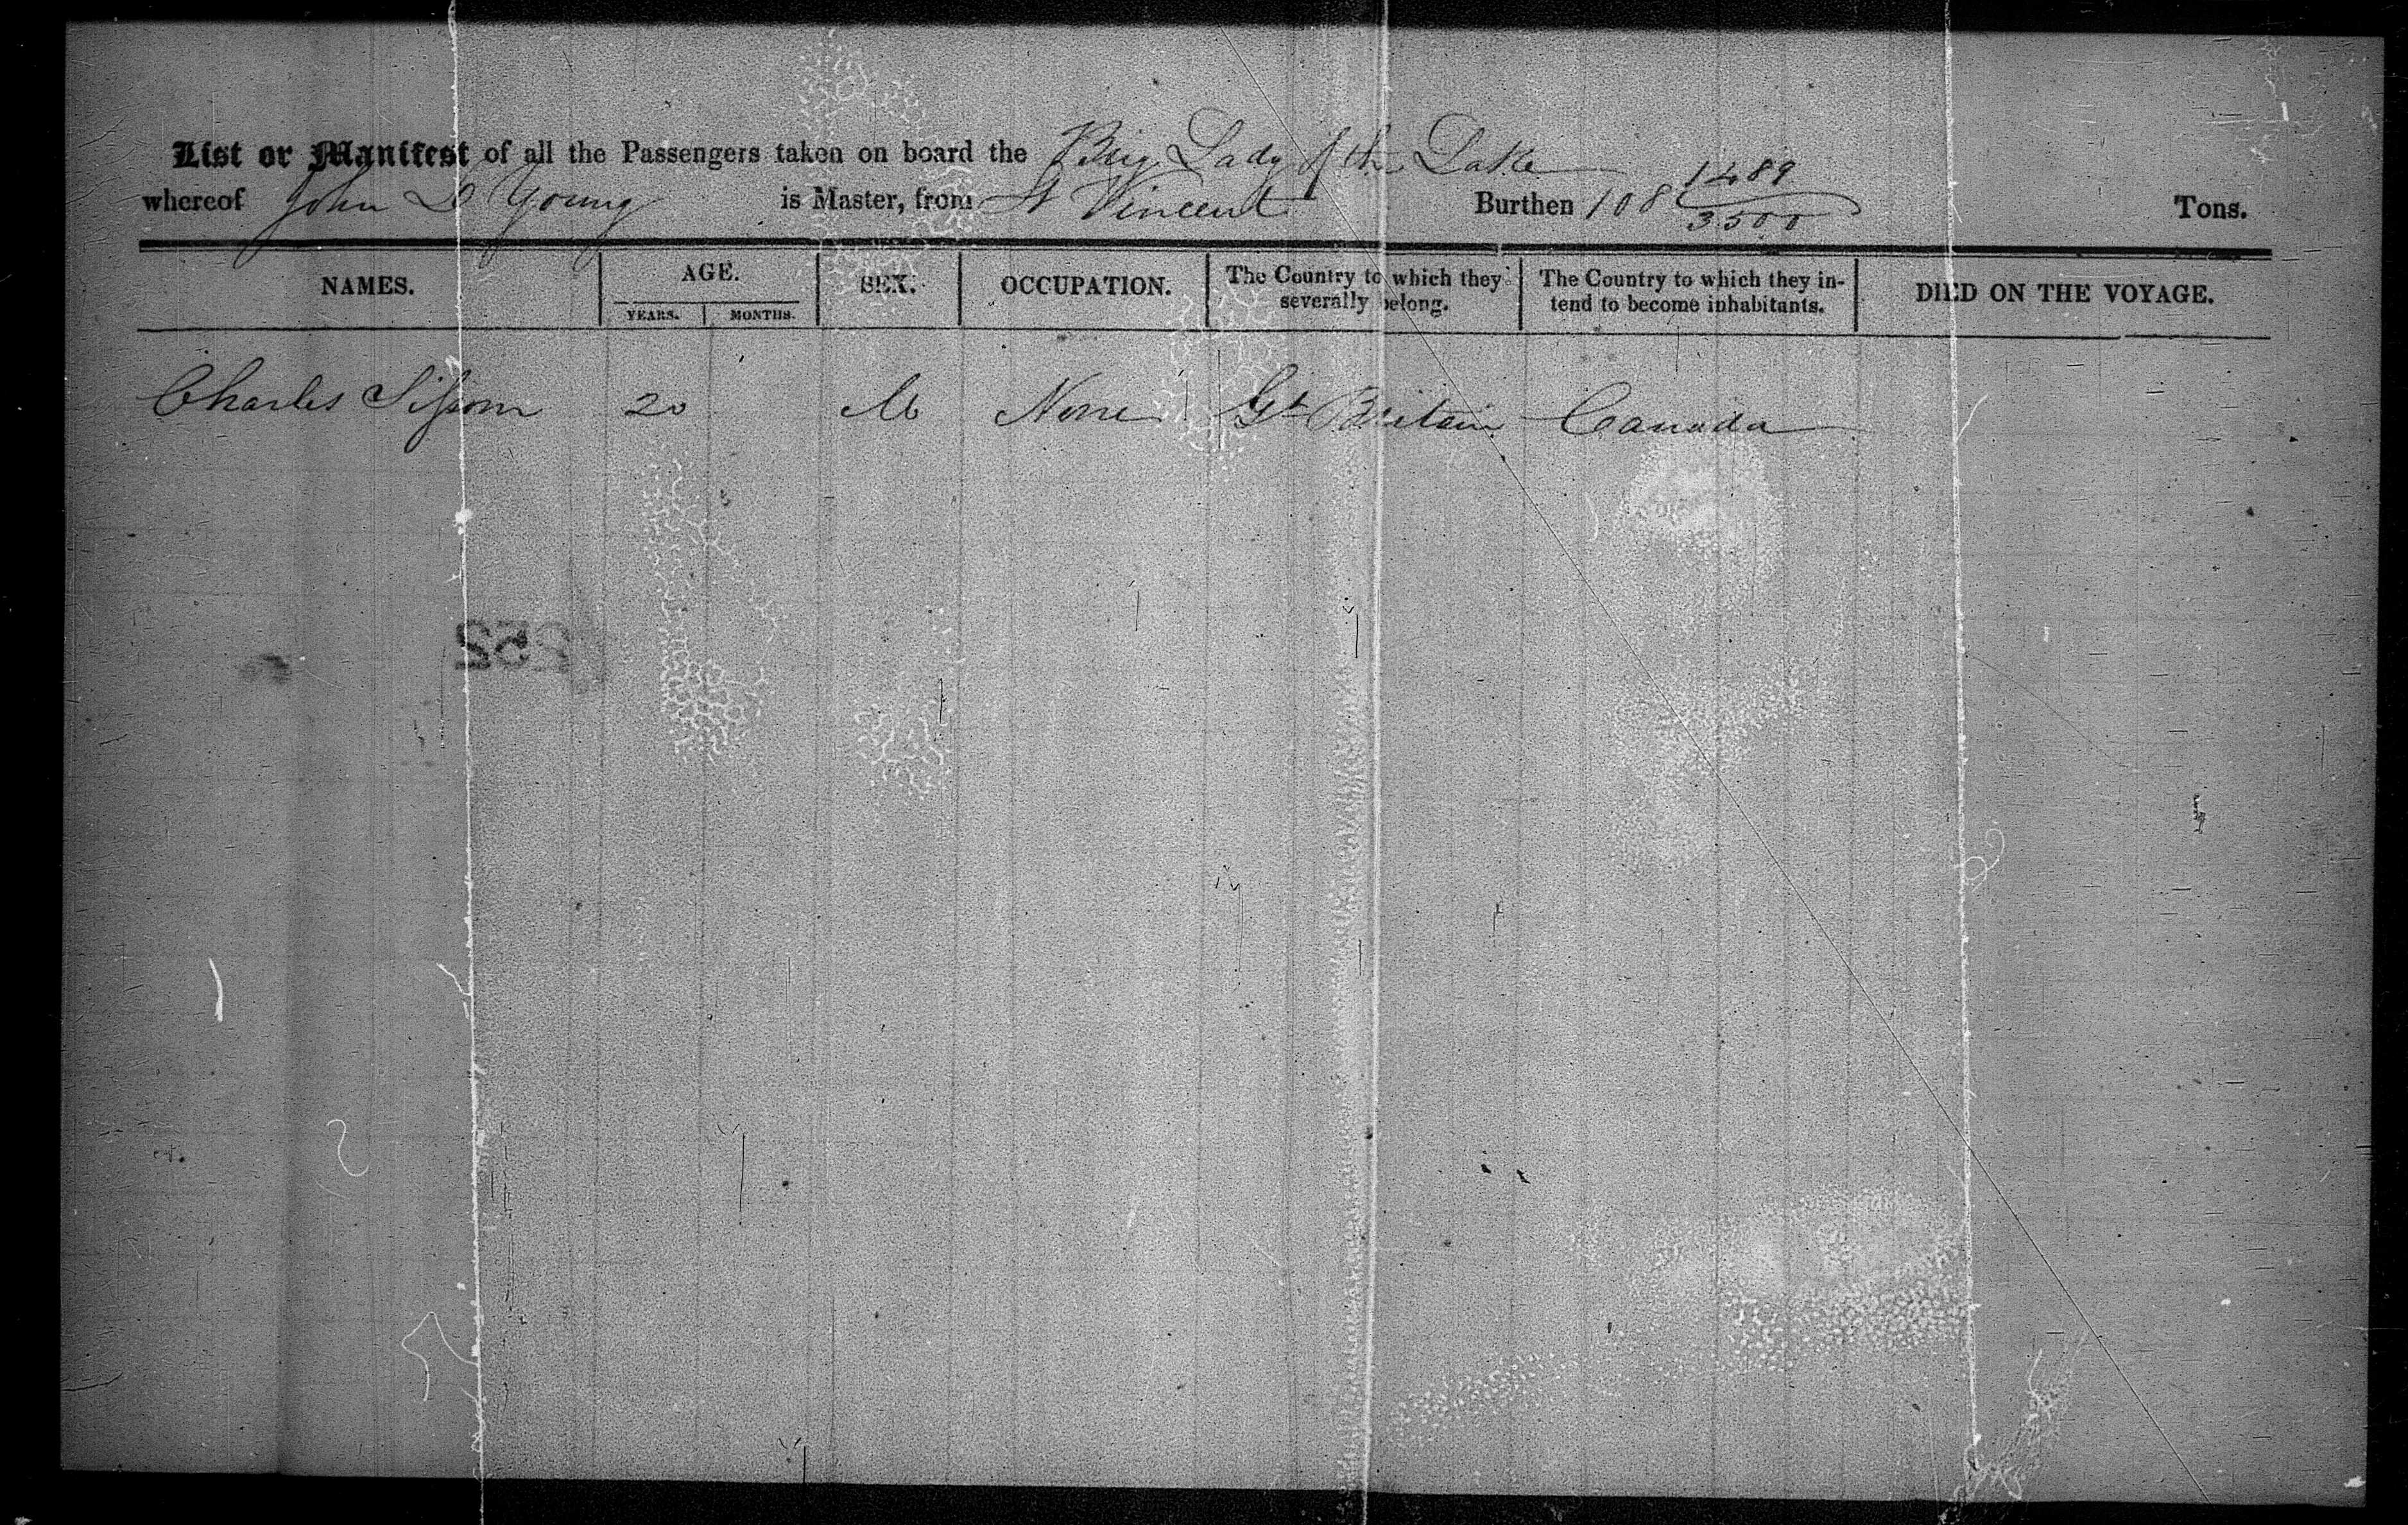 List or Manifest of all the Passengers taken on board the Brig Lady of the Lake
whereof John D Young is Master, from St Vincent Burthen 108 1489/3500 Tons.
NAMES. AGE. SEX. OCCUPATION. The Country to which they severally belong. The Country to which they intend to become inhabitants. DIED ON THE VOYAGE.
YEARS. MONTHS.
Charles Sisson 20 M None Gt Britain Canada
252